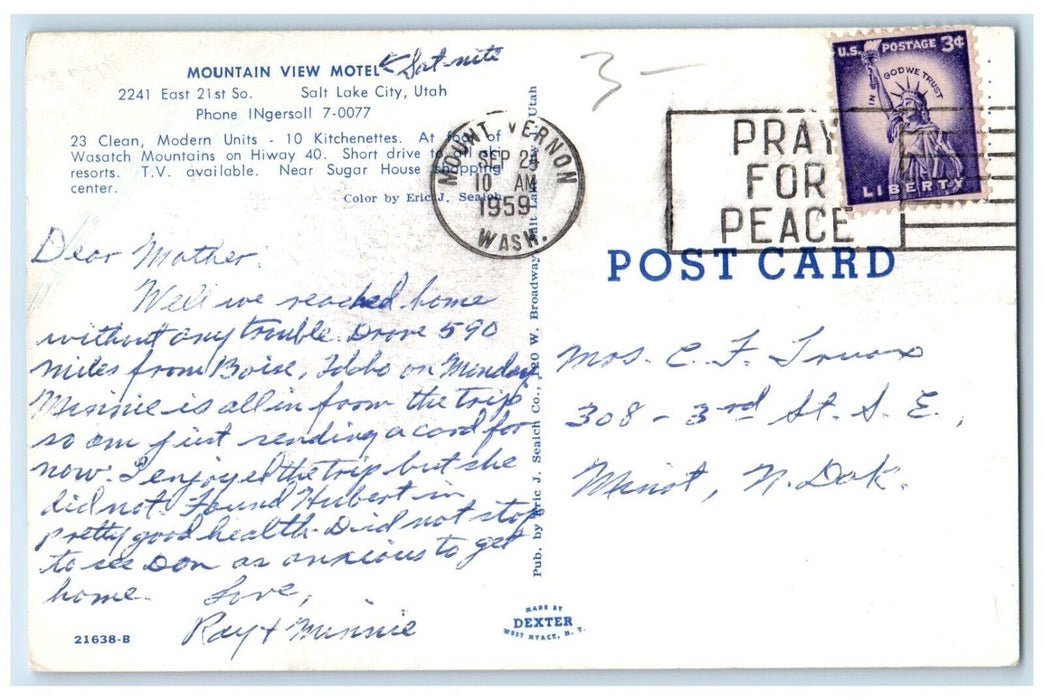 MOUNTAIN VIEW MOTEL Sat-nite
2241 East 21st So. Salt Lake City, Utah
Phone INgersoll 7-0077
23 Clean, Modern Units - 10 Kitchenettes. At foot of
Wasatch Mountains on Hiway 40. Short drive to all ski
resorts. T.V. available. Near Sugar House shopping
center.
Color by Eric J. Seaich
Dear Mother.
Well we reached home
without any trouble. Drove 590
miles from Boise, Idaho on Monday
Minnie is all in from the trip
so am just sending a card for
now. I enjoyed the trip but she
did not. Found Hubert in
pretty good health. Did not stop
to see Don as anxious to get
home. Love,
Ray + Minnie
21638-B
Pub. by Eric J. Seaich Co., W. Broadway, Salt Lake Utah
MADE BY
DEXTER
WEST NYACK, N. Y.
3-
MOUNT VERNON
SEP 24
10 AM
1959
WASH.
PRAY
FOR
PEACE
U.S. POSTAGE 3¢
IN GOD WE TRUST
LIBERTY
POST CARD
Mrs. C. F. Truax
308 - 3rd St. S. E.,
Minot, N. Dak.